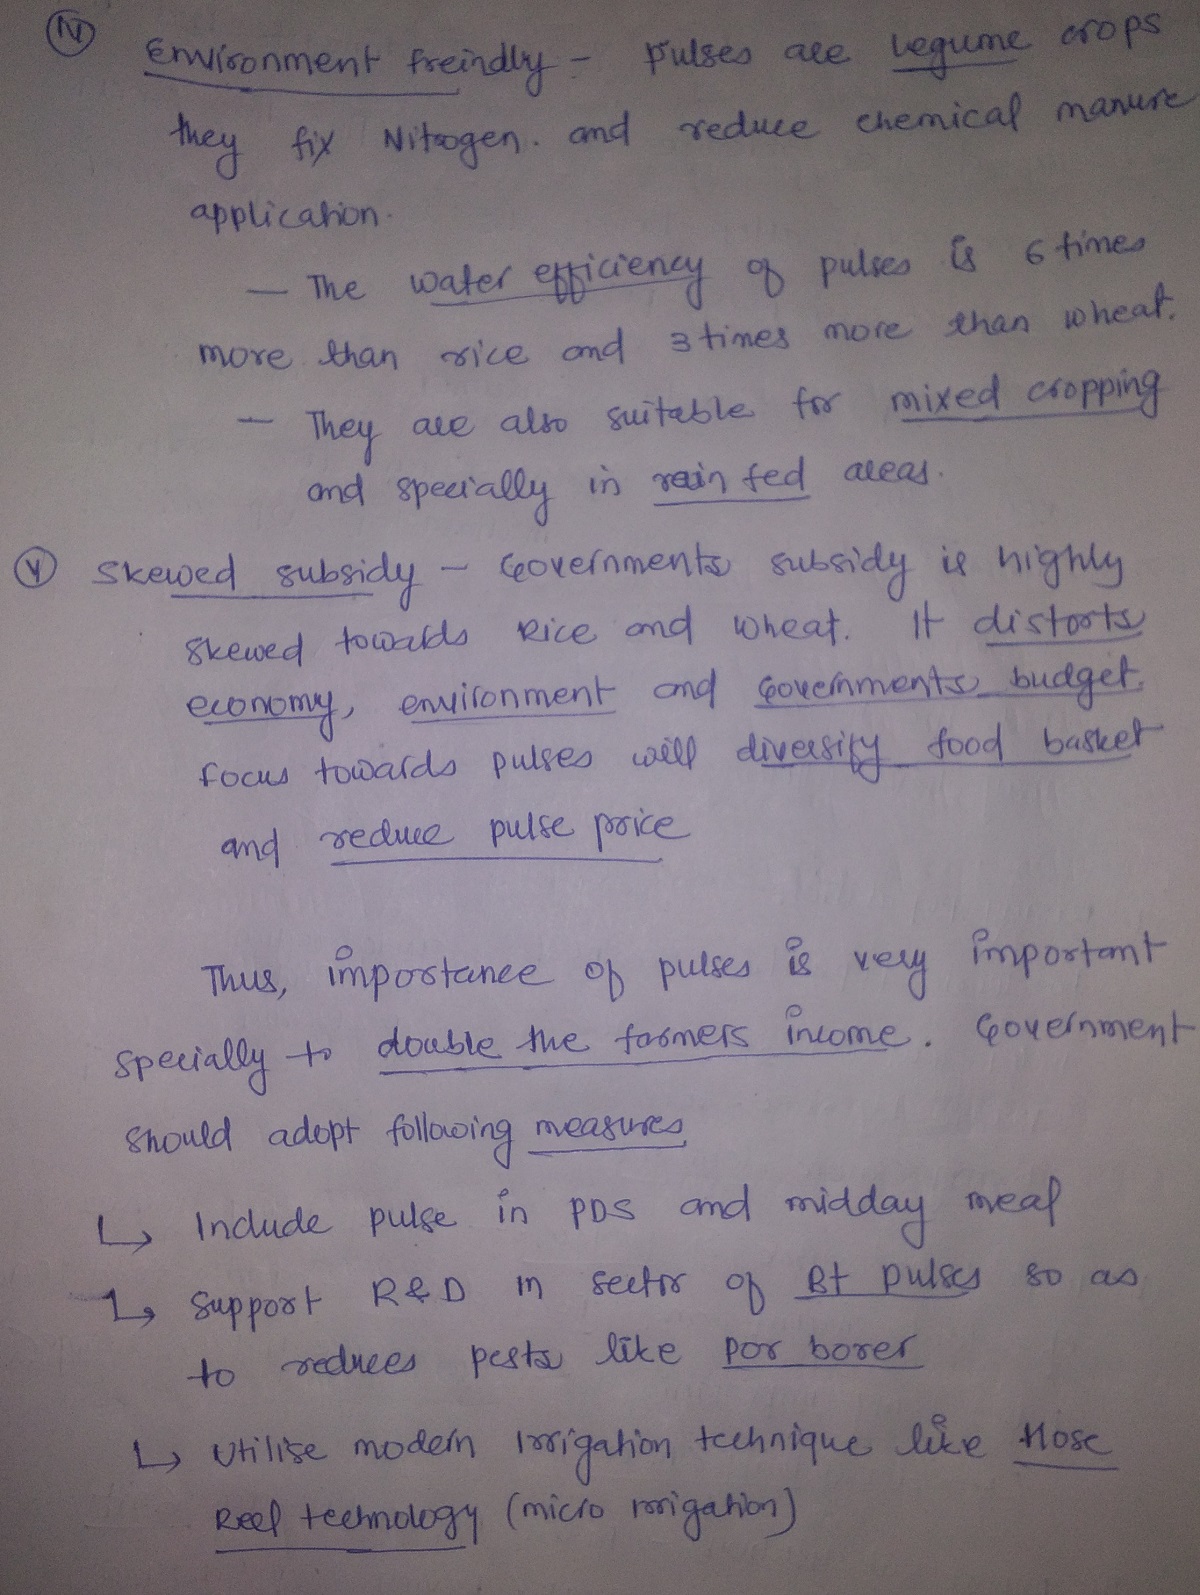 IV
Environment freindly - Pulses are legume crops
they fix Nitrogen. and reduce chemical manure
application.
— The water efficiency of pulses is 6 times
more than rice and 3 times more than wheat.
— They are also suitable for mixed cropping
and specially in rain fed areas.
V Skewed subsidy - Governments subsidy is highly
skewed towards Rice and wheat. It distorts
economy, environment and Governments budget.
Focus towards pulses will diversify food basket
and reduce pulse price
Thus, importance of pulses is very important
specially to double the farmers income. Government
should adopt following measures
↳ Include pulse in PDS and midday meal
↳ Support R&D in sector of Bt pulses so as
to reduces pests like por borer
↳ Utilise modern Irrigation technique like Hose
Reel technology (micro irrigation)